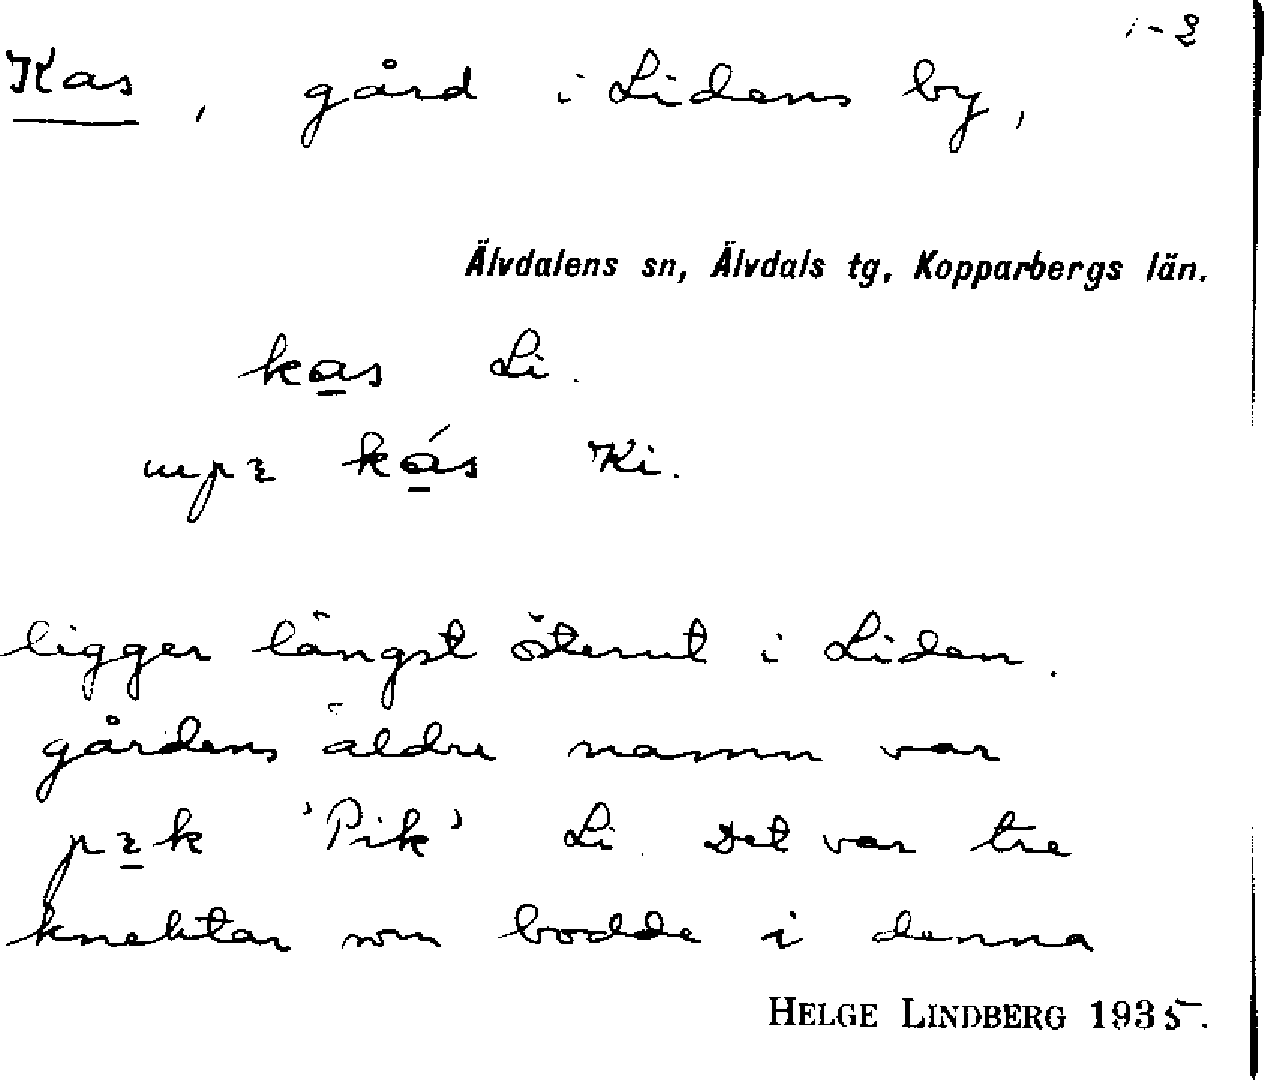 1-3
Kas, gård i Lidens by,
Älvdalens sn, Älvdals tg, Kopparbergs län.
kas Li.
kás Ki.
ligger längst österut i Liden.
gårdens äldre namn var
'Pik' Li. Det var tre
knektar som bodde i denna
HELGE LINDBERG 1935.